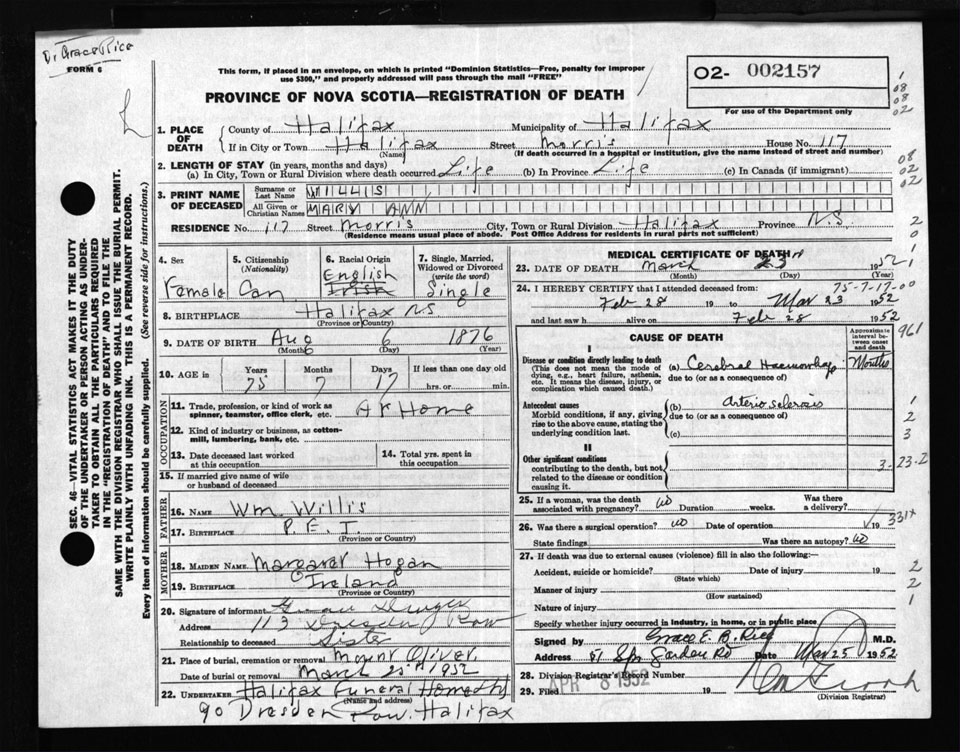 Dr Grace Rice
FORM 6
This form, if placed in an envelope, on which is printed "Dominion Statistics—Free, penalty for improper
use $300," and properly addressed will pass through the mail "FREE"
02- 002157
For use of the Department only
PROVINCE OF NOVA SCOTIA—REGISTRATION OF DEATH
1
08
08
02
1. PLACE OF DEATH
County of Halifax Municipality of Halifax
If in City or Town Halifax Street Morris House No. 117
(Name) (If death occurred in a hospital or institution, give the name instead of street and number)
2. LENGTH OF STAY (in years, months and days)
(a) In City, Town or Rural Division where death occurred Life (b) In Province Life (c) In Canada (if immigrant)
08
02
02
3. PRINT NAME OF DECEASED
Surname or Last Name WILLIS
All Given or Christian Names MARY ANN
RESIDENCE No. 117 Street Morris City, Town or Rural Division Halifax Province N.S.
(Residence means usual place of abode. Post Office Address for residents in rural parts not sufficient)
2
0
1
SEC. 46—VITAL STATISTICS ACT MAKES IT THE DUTY
OF THE UNDERTAKER OR PERSON ACTING AS UNDER-
TAKER TO OBTAIN ALL THE PARTICULARS REQUIRED
IN THE "REGISTRATION OF DEATH" AND TO FILE THE
SAME WITH THE DIVISION REGISTRAR WHO SHALL ISSUE THE BURIAL PERMIT.
WRITE PLAINLY WITH UNFADING INK. THIS IS A PERMANENT RECORD.
Every item of information should be carefully supplied. (See reverse side for instructions.)
4. Sex
Female
5. Citizenship
(Nationality)
Can
6. Racial Origin
English
Irish
7. Single, Married,
Widowed or Divorced
(write the word)
Single
8. BIRTHPLACE Halifax N.S.
(Province or Country)
9. DATE OF BIRTH Aug 6 1876
(Month) (Day) (Year)
10. AGE in
Years Months Days If less than one day old
75 7 17 hrs. or min.
OCCUPATION
11. Trade, profession, or kind of work as
spinner, teamster, office clerk, etc. At Home
12. Kind of industry or business, as cotton-
mill, lumbering, bank, etc.
13. Date deceased last worked
at this occupation
14. Total yrs. spent in
this occupation
15. If married give name of wife
or husband of deceased
FATHER
16. NAME Wm. Willis
17. BIRTHPLACE P.E.I.
(Province or Country)
MOTHER
18. MAIDEN NAME Margaret Hogan
19. BIRTHPLACE Ireland
(Province or Country)
20. Signature of informant
Address 113 Dresden Row
Relationship to deceased Sister
21. Place of burial, cremation or removal Mount Olivet
Date of burial or removal March 25th 1952
22. UNDERTAKER Halifax Funeral Home Ltd
(Name and address)
90 Dresden Row. Halifax
MEDICAL CERTIFICATE OF DEATH
23. DATE OF DEATH March 23 1952
(Day) (Year)
75-7-17-00
24. I HEREBY CERTIFY that I attended deceased from:
Feb 28 19 to Mar 23 1952
and last saw h alive on Feb 28 1952
CAUSE OF DEATH
Approximate
interval between
onset
and death
961
I
Disease or condition directly leading to death
(This does not mean the mode of
dying, e.g., heart failure, asthenia,
etc. It means the disease, injury, or
complication which caused death.)
(a) Cerebral Haemorrhage Months
due to (or as a consequence of)
Antecedent causes
Morbid conditions, if any, giving
rise to the above cause, stating the
underlying condition last.
(b) Arterio sclerosis
due to (or as a consequence of)
(c)
1
2
3
II
Other significant conditions
contributing to the death, but not
related to the disease or condition
causing it.
3-23-2
25. If a woman, was the death
associated with pregnancy? no Duration weeks. Was there
a delivery?
26. Was there a surgical operation? no Date of operation 19
331x
State findings Was there an autopsy? no
27. If death was due to external causes (violence) fill in also the following:—
Accident, suicide or homicide? Date of injury 19
(State which)
Manner of injury
(How sustained)
Nature of injury
2
2
1
Specify whether injury occurred in Industry, in home, or in public place
Signed by Grace E. B. Rice M.D.
Address 51 Spr Garden Rd Date Mar 25 1952
28. Division Registrar's Record Number
29. Filed APR 8 1952 19
(Division Registrar)